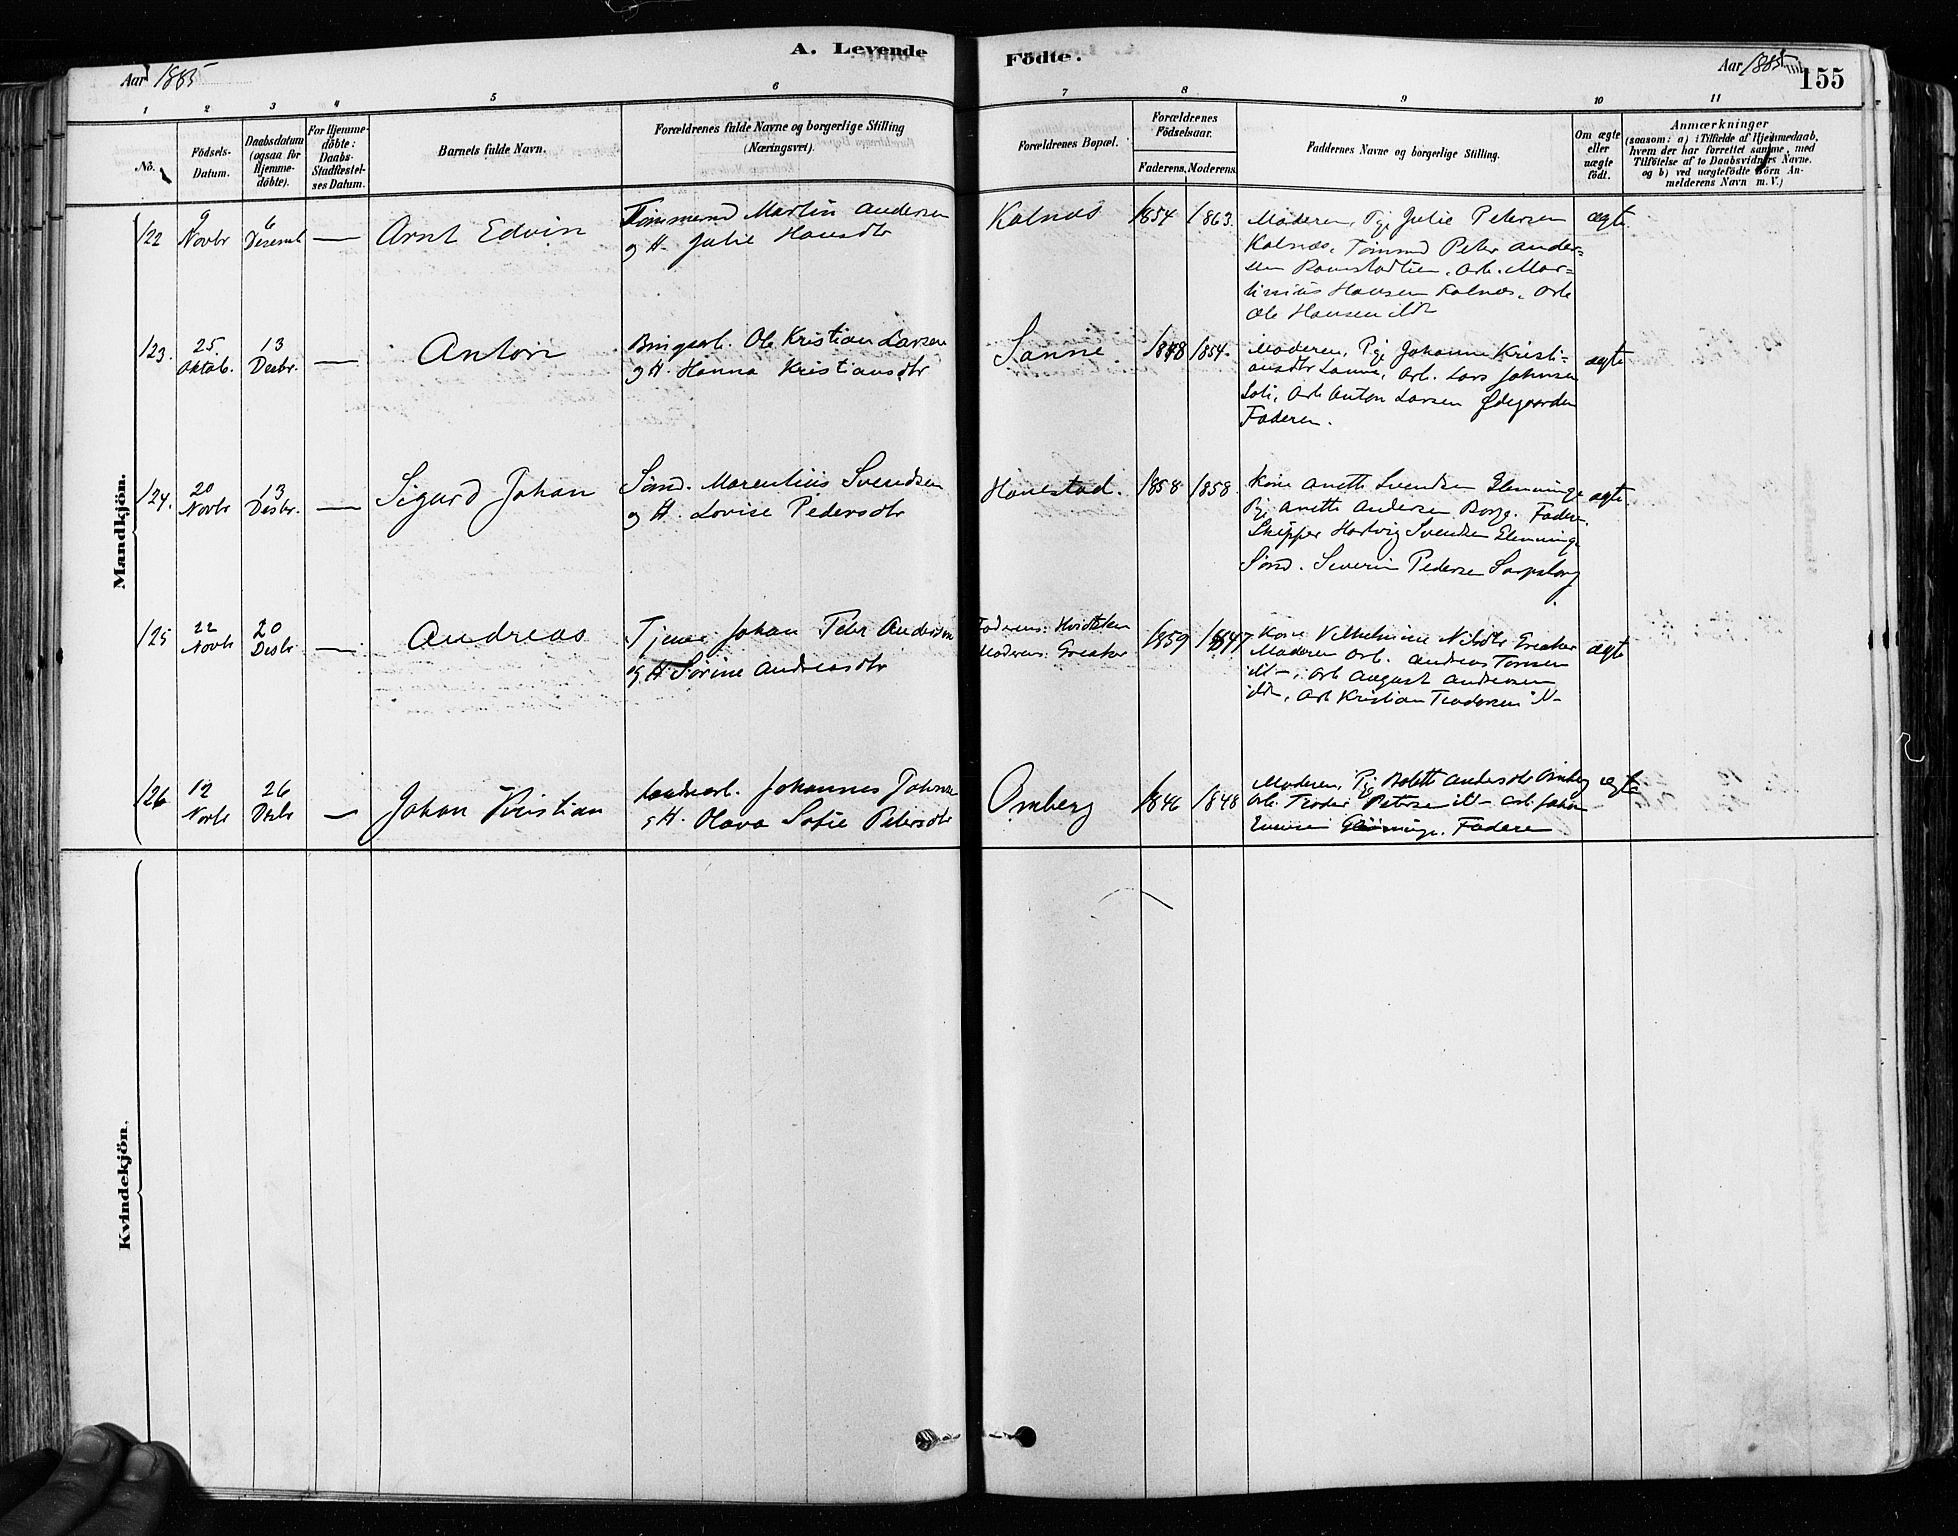 A. Levende
Födte.
Aar 1885
Aar 1885
155
1 2 3 4 5 6
7 8 9 10 11
No.
Födsels-
Datum.
Daabsdatum
(ogsaa for
Hjemme-
döbte).
For Hjemme-
döbte:
Daabs-
Stadfæstel-
ses Datum.
Barnets fulde Navn.
Forældrenes fulde Navne og borgerlige Stilling
(Næringsvei).
Forældrenes Bopæl.
Forældrenes
Födselsaar.
Faderens. Moderens.
Faddernes Navne og borgerlige Stilling.
Om ægte
eller
uægte
födt.
Anmærkninger
(saasom: a) i Tilfælde af Hjemmedaab,
hvem der har forrettet samme, med
Tilföielse af to Daabsvidners Navne.
og b) ved uægtefödte Börn An-
melderens Navn m. V.)
Mandkjön.
122
9
Novbr
6
Desemb
—
Arnt Edvin
Tömmermd Martin Andersen
og H. Julie Hansdtr
Kalnæs
1854
1863.
Moderen, Pige Julie Petersen
Kalnæs, Tömmd Peter Ander=
sen, Arb. Mar=
tinius Hansen Kalnæs, Arb
Ole Hansen ibd
ægte
123.
25
Oktob.
13
Desbr.
—
Anton
Ole Kristian Larsen
og H. Hanna Kristiansdtr
Sanne.
1848
1854.
Moderen, Pige Johanne Kristi=
ansdtr Sanne, Arb. Lars Johnsen
Arb Anton Larsen Ödegaarden
Faderen.
ægte
124.
20
Novbr
13
Desbr.
—
Sigurd Johan
Sömd. Marentius Svendsen
og H. Lovise Pedersdtr
Hanestad.
1858
1858.
Kone Anette Svendsen Glemminge
Pige Anette Andersen Borge. Faderen.
Skipper Hartvig Svendsen Glemminge
Sömd. Severin Pedersen Sarpsborg
ægte
125
22
Novbr
20
Desbr
—
Andreas
Tjener Johan Peter Andersen
og H Sörine Andreasdtr
Faderens: Hvidsten
Moderens: Greaker
1859
1847
Kone Vilhelmine Nilsdtr Greaker
Moderen Arb. Andreas Tomsen
ibd, Arb August Andersen
ibd, Arb Kristian
ægte
126
12
Novbr
26
Desbr
—
Johan Kristian
Johannes Johnsen
og H. Olava Sofie Petersdtr
Omberg
1846
1848
Moderen, Pige Bolette Andersdtr Omberg
Arb. Petersen ibd Arb Johan
Faderen
ægte
Kvindekjön.